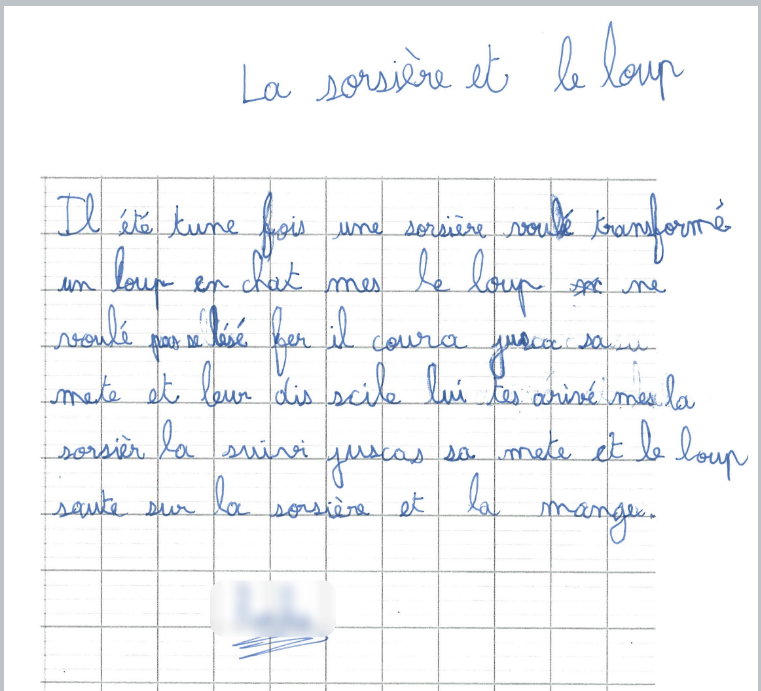 La sorsière et le loup
Il été tune fois une sorsière voulé transformé
un loup en chat mes le loup ne
voulé pas se lésé fer il coura jusca sa
mete et leur dis scile lui tes arivé mes la
sorsièr la suivi juscas sa mete et le loup
saute sur la sorsière et la mange.